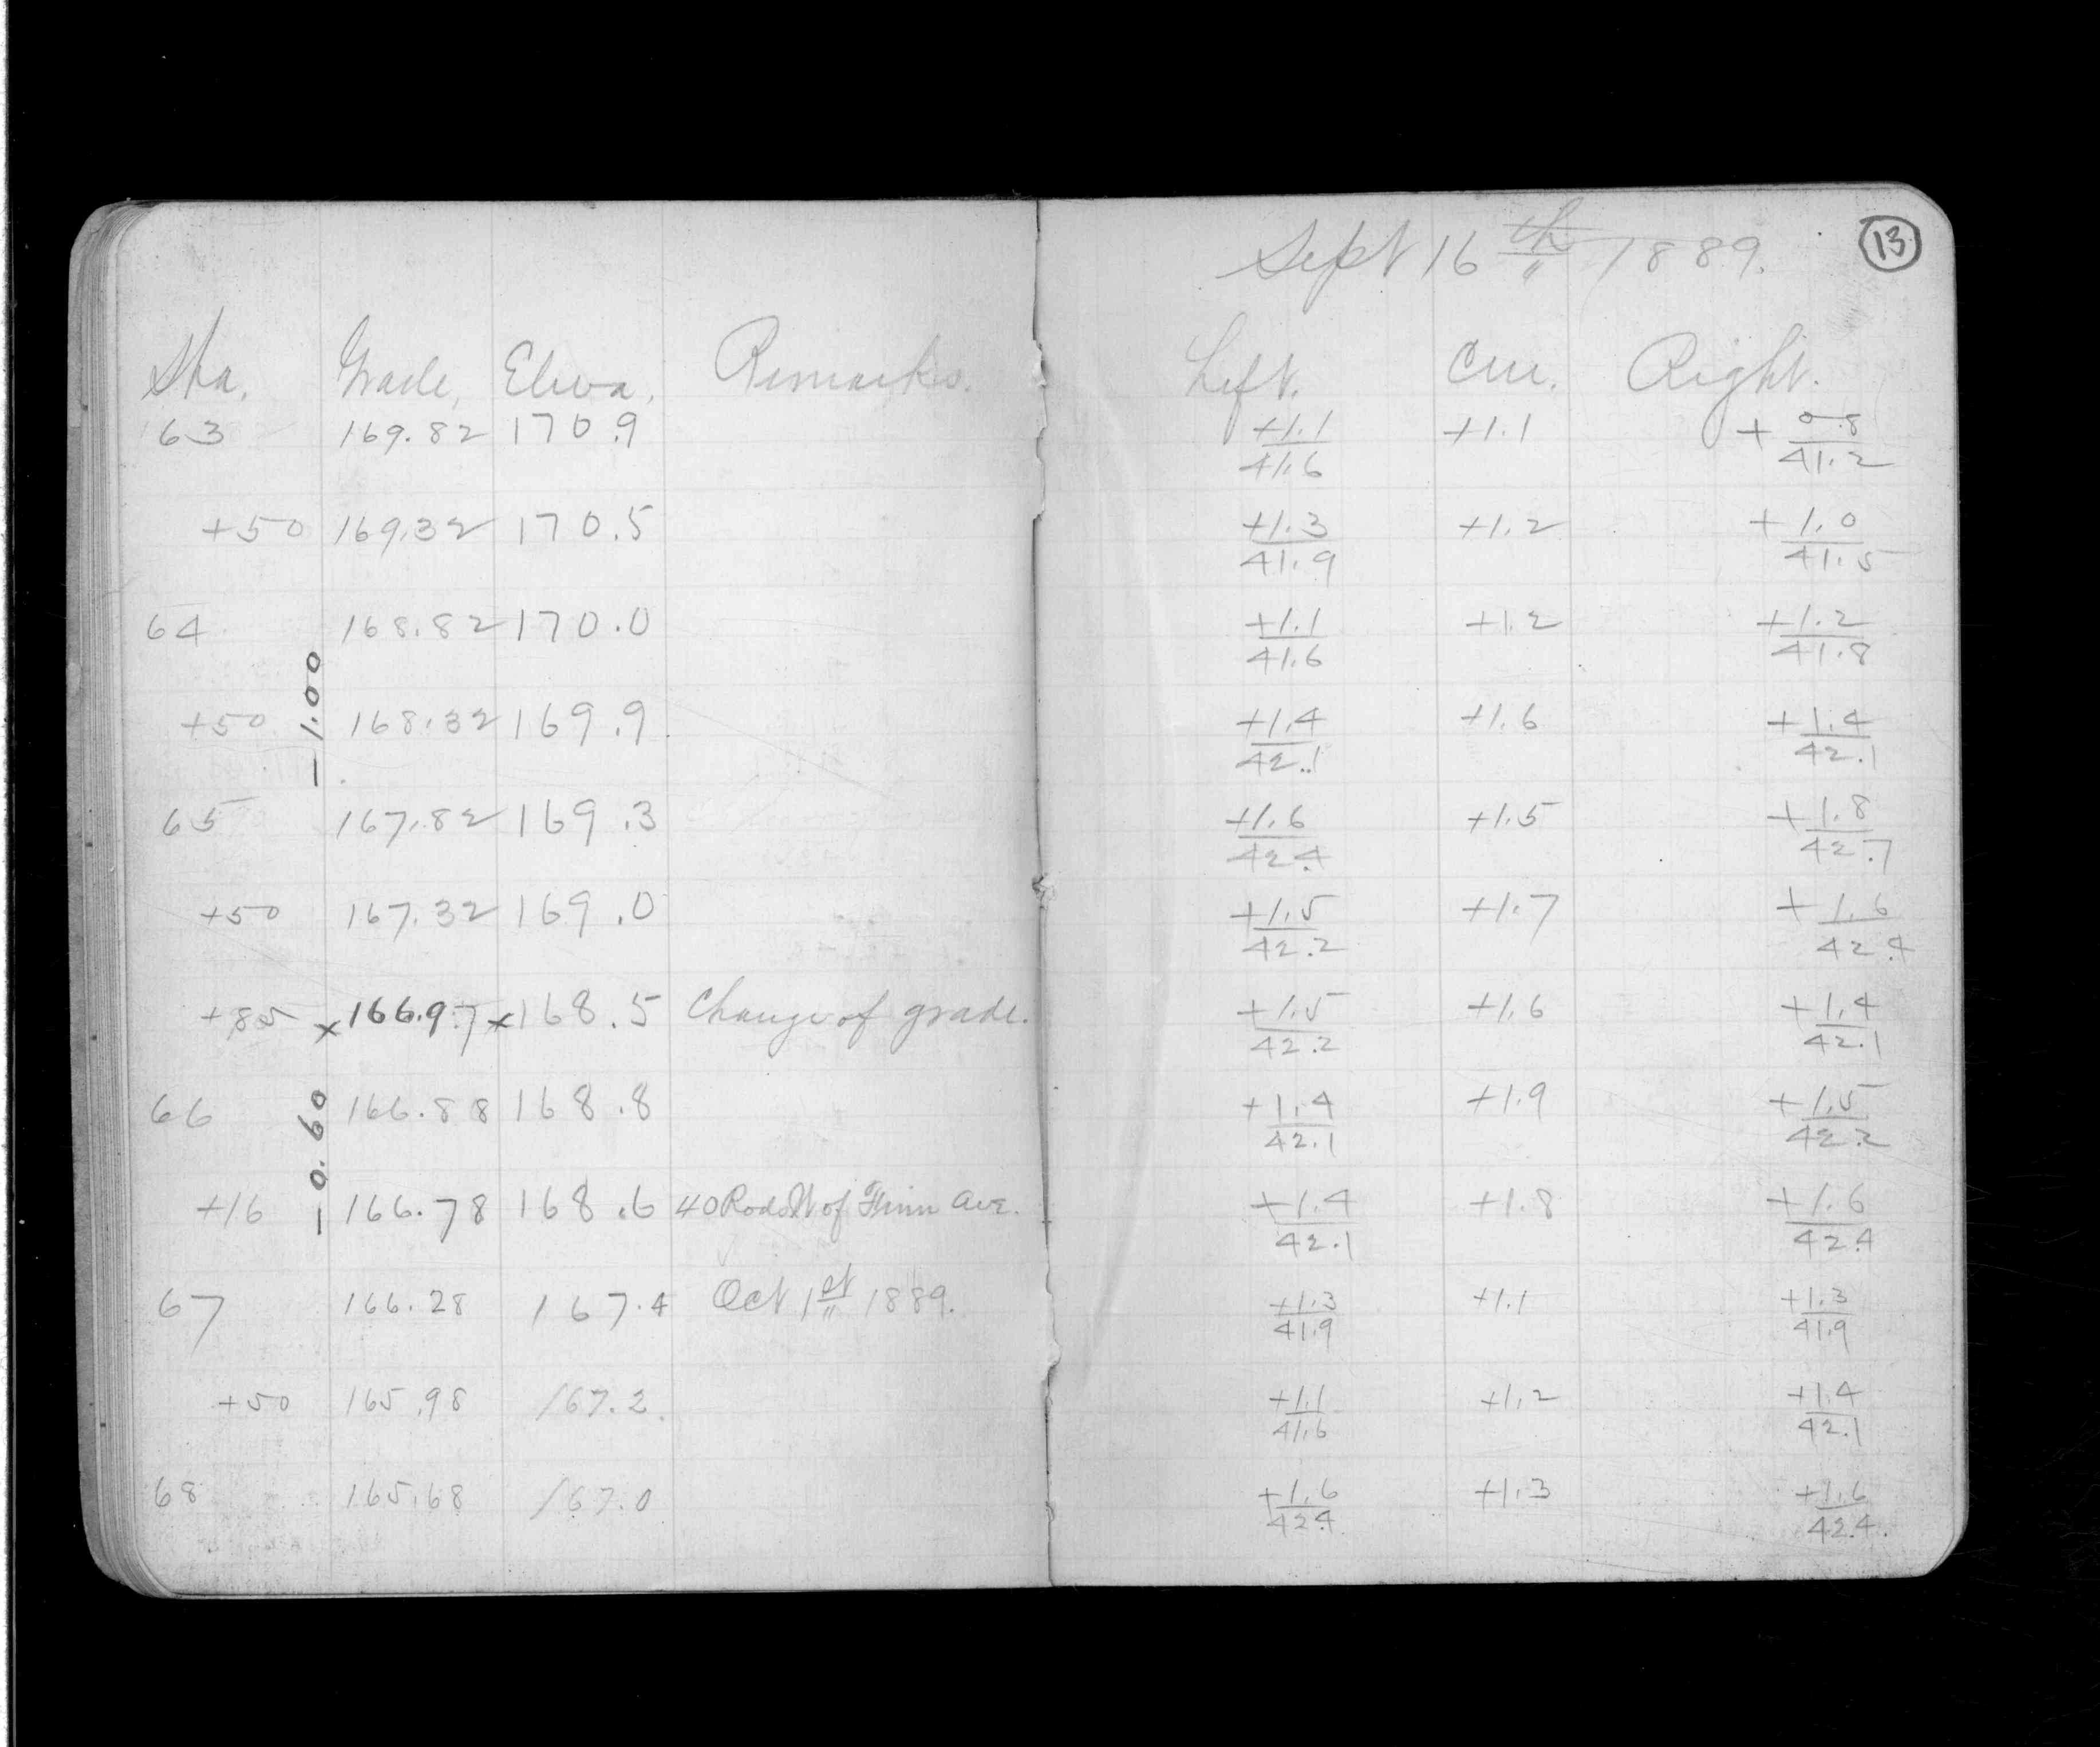 Sept 16 th 1889. 13
Sta. Grade, Eleva. Remarks. Left. Cen. Right.
63 169.82 170.9 +1.1/41.6 +1.1 +0.8/41.2
+50 169.32 170.5 +1.3/41.9 +1.2 +1.0/41.5
64 168.82 170.0 +1.1/41.6 +1.2 +1.2/41.8
-1.00
+50 168.32 169.9 +1.4/42.1 +1.6 +1.4/42.1
65 167.82 169.3 +1.6/42.4 +1.5 +1.8/42.7
+50 167.32 169.0 +1.5/42.2 +1.7 +1.6/42.4
+85 x 166.97 x 168.5 Change of grade. +1.5/42.2 +1.6 +1.4/42.1
66 166.88 168.8 +1.4/42.1 +1.9 +1.5/42.2
-0.60
+16 166.78 168.6 40 Rods W of Ave. +1.4/42.1 +1.8 +1.6/42.4
67 166.28 167.4 Oct 1st 1889. +1.3/41.9 +1.1 +1.3/41.9
+50 165.98 167.2. +1.1/41.6 +1.2 +1.4/42.1
68 165.68 167.0 +1.6/42.4. +1.3 +1.6/42.4.